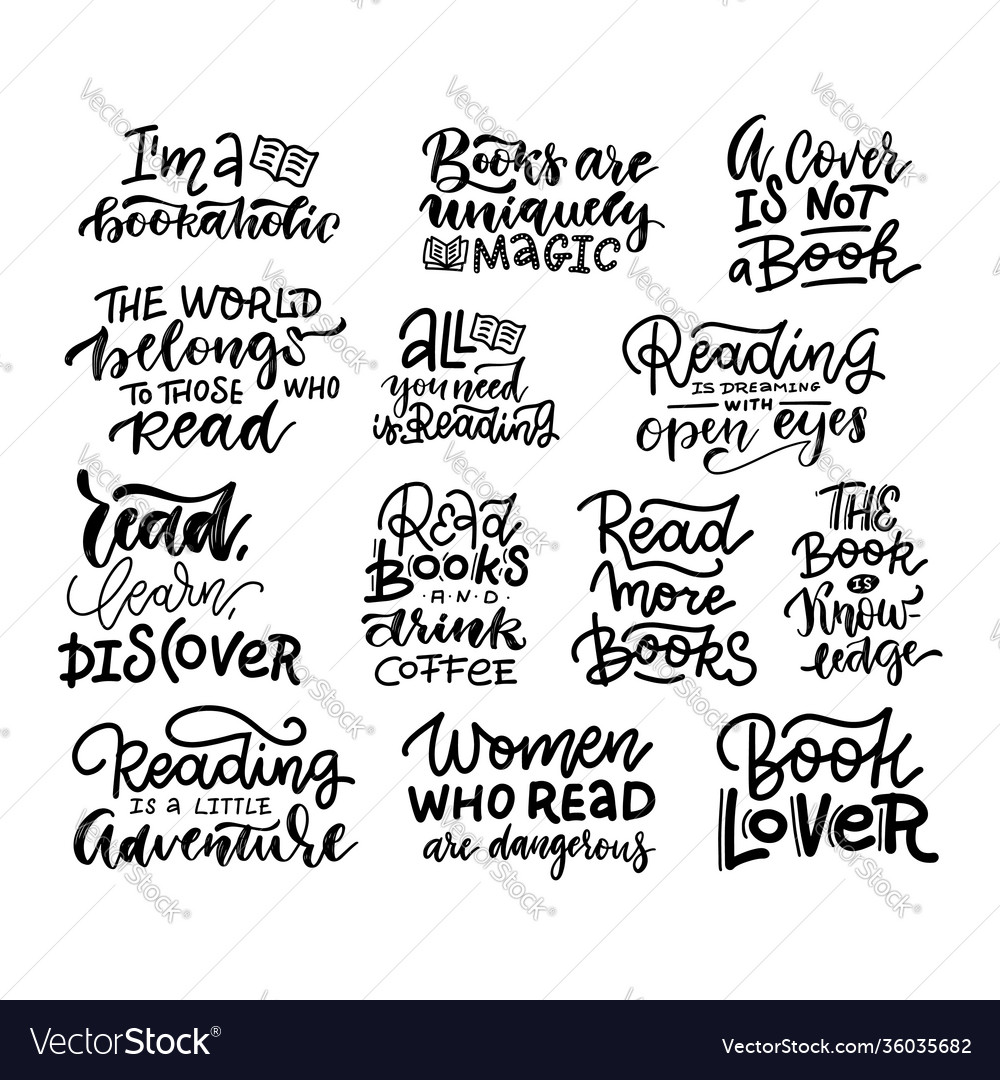 I'm a
bookaholic
Books are
uniquely
MAGIC
A Cover
IS NOT
a Book
THE WORLD
belongs
TO THOSE WHO
Read
all
you need
is Reading
Reading
IS DREAMING
WITH
open eyes
read,
learn,
DISCOVER
Read
Books
AND
drink
COFFEE
Read
more
Books
THE
Book
IS
Know-
ledge
Reading
IS a LITTLE
Adventure
Women
WHO READ
are dangerous
Book
LOVER
VectorStock®
VectorStock.com/36035682